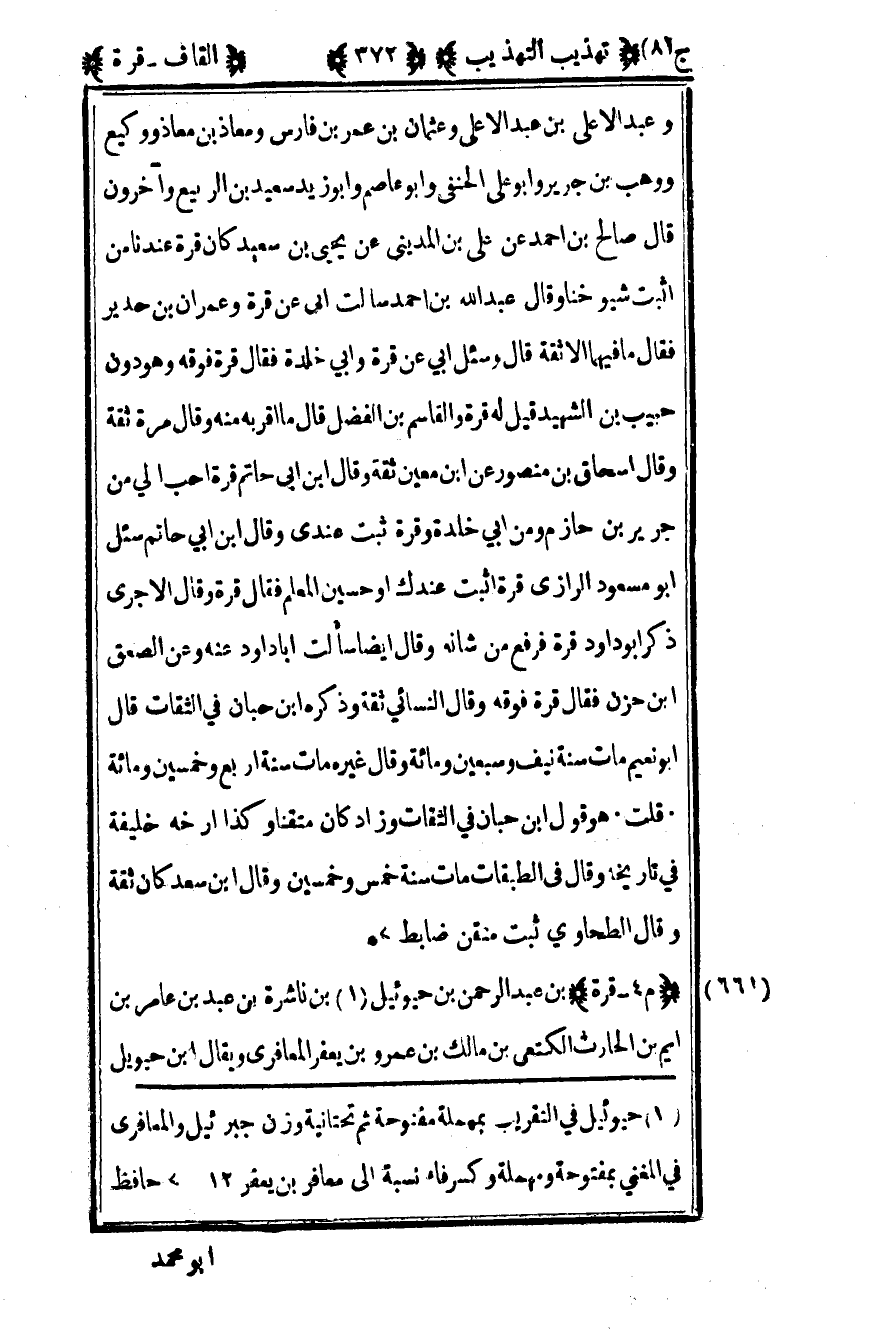 ج (٨٢) ﴿ تهذيب التهذيب ﴾ ﴿ ٣٧٢ ﴾ ﴿ القاف - قرة ﴾
و عبد الاعلى بن عبد الاعلى وعثمان بن عمر بن فارس ومعاذ بن معاذ ووكيع
ووهب بن جرير وابو على الحنفى وابو عاصم وابوزيد سعيد بن الربيع وآخرون
قال صالح بن احمد عن على بن المدينى عن يحيى بن سعيد كان قرة عندنا من
اثبت شيوخنا وقال عبدالله بن احمد سالت ابى عن قرة وعمران بن حدير
فقال ما فيهما الا ثقة قال وسئل ابي عن قرة وابي خلدة فقال قرة فوقه وهو دون
حبيب بن الشهيد قيل له قرة والقاسم بن الفضل قال ما اقربه منه وقال مرة ثقة
وقال اسحاق بن منصور عن ابن معين ثقة وقال ابن ابى حاتم قرة احب الي من
جرير بن حازم ومن ابي خلدة وقرة ثبت عندى وقال ابن ابي حاتم سئل
ابو مسعود الرازى قرة اثبت عندك او حسين المعلم فقال قرة وقال الاجرى
ذكر ابو داود قرة فرفع من شانه وقال ايضا سألت اباداود عنه وعن الصعق
ابن حزن فقال قرة فوقه وقال النسائي ثقة وذكره ابن حبان في الثقات قال
ابو نعيم مات سنة نيف وسبعين ومائة وقال غيره مات سنة اربع وخمسين ومائة
· قلت · هو قول ابن حبان في الثقات وزاد كان متقنا وكذا ارخه خليفة
في تاريخه وقال فى الطبقات مات سنة خمس وخمسين وقال ابن سعد كان ثقة
و قال الطحاوي ثبت متقن ضابط >
(٦٦١) ﴿ م ٤ - قرة ﴾ بن عبد الرحمن بن حيوئيل (١) بن ناشرة بن عبد بن عامر بن
ايم بن الحارث الكتعى بن مالك بن عمرو بن يعفر المعافرى ويقال ابن حيويل
(١) حيوئيل في التقريب بمهملة مفتوحة ثم تحتانية وزن جبرئيل والمعافرى
في المغني بمفتوحة ومهملة وكسر فاء نسبة الى معافر بن يعفر ١٢ > حافظ
ابو محمد